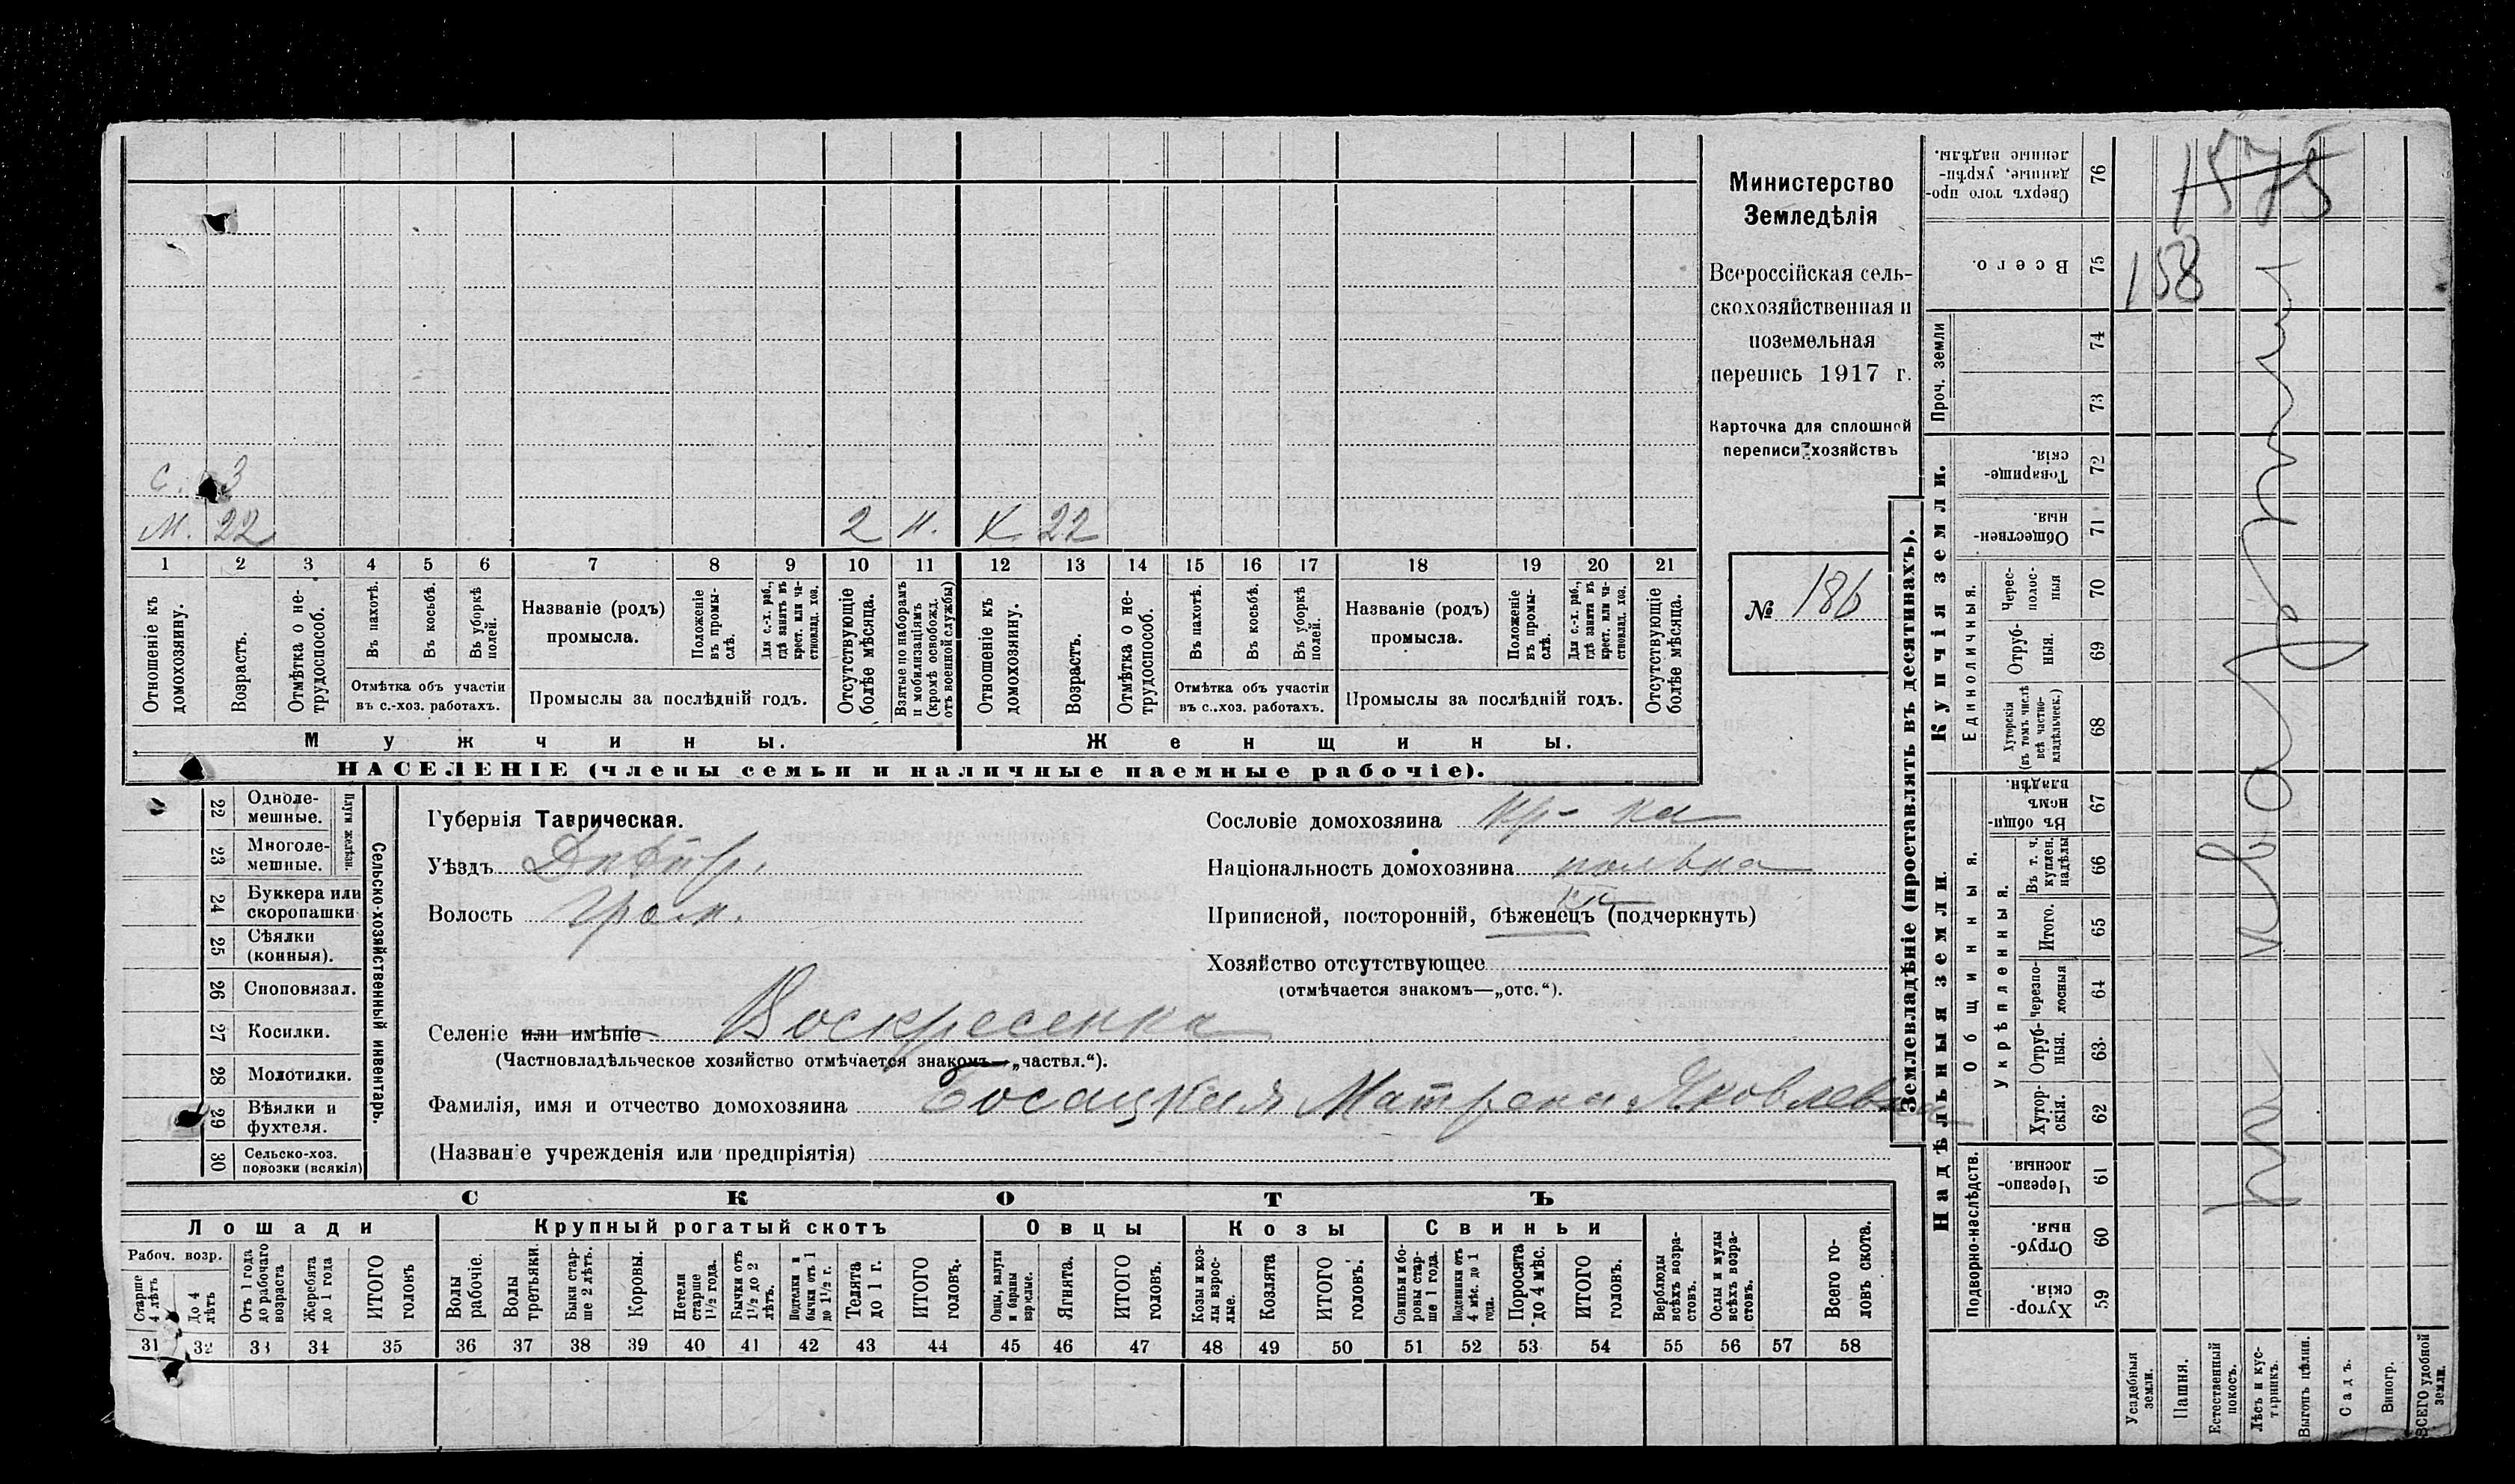 С. 3
М. 22 2 н. Х 22
1 2 3 4 5 6 7 8 9 10 11 12 13 14 15 16 17 18 19 20 21
Отношеніе къ домохозяину.
Возрастъ.
Отмѣтка о не-
трудоспособ.
Въ пахотѣ.
Въ косьбѣ.
Въ уборкѣ полей.
Отмѣтка объ участіи
въ с.-хоз. работахъ.
Названіе (родъ)
промысла.
Положеніе
въ промы-
слѣ.
Для с.-х. раб.,
гдѣ занятъ въ
крест. или ча-
стновлад. хоз.
Промыслы за послѣдній годъ.
Отсутствующіе
болѣе мѣсяца.
Взятые по наборамъ
и мобилизаціямъ
(кромѣ освобожд.
отъ военной службы)
Отношеніе къ
домохозяину.
Возрастъ.
Отмѣтка о не-
трудоспособ.
Въ пахотѣ.
Въ косьбѣ.
Въ уборкѣ
полей.
Отмѣтка объ участіи
въ с..хоз. работахъ.
Названіе (родъ)
промысла.
Положеніе
въ промы-
слѣ.
Для с.-х. раб.,
гдѣ занята въ
крест. или ча-
стновлад. хоз.
Промыслы за послѣдній годъ.
Отсутствующіе
болѣе мѣсяца.
Мужчины. Женщины.
НАСЕЛЕНІЕ (члены семьи и наличные наемные рабочіе).
Министерство
Земледѣлія
Всероссійская сель-
скохозяйственная и
поземельная
перепись 1917 г.
Карточка для сплошной
переписи хозяйствъ
№ 186
22 Одноле-
мешные.
23 Многоле-
мешные.
Плуги желѣзн.
24 Буккера или
скоропашки
25 Сѣялки
(конныя).
26 Сноповязал.
27 Косилки.
28 Молотилки.
29 Вѣялки и
фухтеля.
30 Сельско-хоз.
повозки (всякія)
Сельско-хозяйственный инвентарь.
Губернія Таврическая.
Уѣздъ Днѣпр.
Волость
Селеніе или имѣніе Воскресенка
(Частновладѣльческое хозяйство отмѣчается знакомъ—„частвл.“).
Фамилія, имя и отчество домохозяина Босацкая Матрена Яковлевна
(Названіе учрежденія или предпріятія)
Сословіе домохозяина кр-ка
Національность домохозяина полька
Приписной, посторонній, бѣженецъ (подчеркнуть)
Хозяйство отсутствующее
(отмѣчается знакомъ—„отс.“).
СКОТЪ
Лошади Крупный рогатый скотъ Овцы Козы Свиньи
Рабоч. возр.
Старше
4 лѣтъ
До 4
лѣтъ
Отъ 1 года
до рабочаго
возраста
Жеребята
до 1 года
ИТОГО
головъ
Волы
рабочіе.
Волы
третьяки.
Быки стар-
ше 2 лѣтъ.
Коровы.
Нетели
старше
1½ года.
Бычки отъ
1½ до 2
лѣтъ.
Подтелки и
бычки отъ 1
до 1½ г.
Телята
до 1 г.
ИТОГО
головъ.
Овцы, валухи
и бараны
взрослые.
Ягнята.
ИТОГО
головъ.
Козы и коз-
лы взрос-
лые.
Козлята
ИТОГО
головъ.
Свиньи и бо-
ровы стар-
ше 1 года.
Подсвинки отъ
4 мѣс. до 1
года.
Поросята
до 4 мѣс.
ИТОГО
головъ.
Верблюды
всѣхъ возра-
стовъ.
Ослы и мулы
всѣхъ возра-
стовъ.
Всего го-
ловъ скота.
31 32 33 34 35 36 37 38 39 40 41 42 43 44 45 46 47 48 49 50 51 52 53 54 55 56 57 58
Землевладѣніе (проставлять въ десятинахъ).
Надѣльныя земли
Купчія земли.
Проч. земли
Подворно-наслѣдств.
Общинныя.
Укрѣпленныя.
Единоличныя.
Сверхъ того про-
данные, укрѣп-
ленные надѣлы.
76
1575
Всего.
75
158
74
73
Товарище-
скія.
72
Обществен-
ныя.
71
Черес-
полос-
ныя
70
Отруб-
ныя.
69
Хуторскія
(въ томъ числѣ
всѣ частно-
владѣльческ.)
68
Въ общи-
номъ
владѣн.
67
Въ т. ч.
куплен.
надѣлы
66
Итого.
65
черезпо-
лосныя
64
Отруб-
ныя.
63
Хутор-
скія.
62
Черезпо-
лосныя.
61
Отруб-
ныя.
60
Хутор-
скія.
59
Усадебныя
земли.
Пашня.
Естественный
покосъ.
Лѣсъ и кус-
тарникъ.
Выгонъ цѣлин.
Садъ.
Виногр.
ВСЕГО удобной
земли.